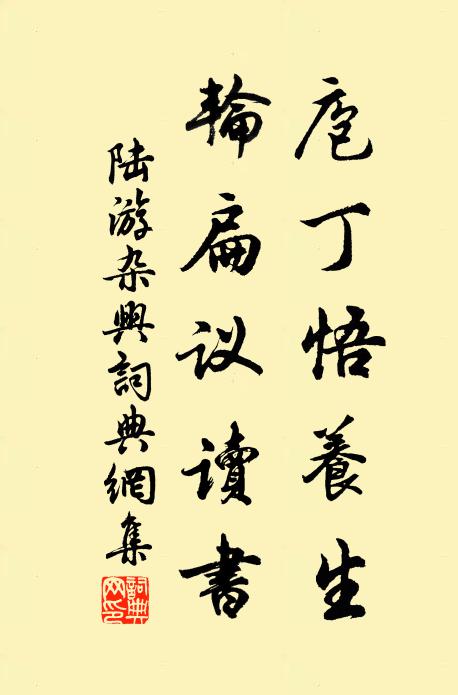 庖丁悟養生
輪扁议讀書
陆游杂興詞典網集
詞典网印